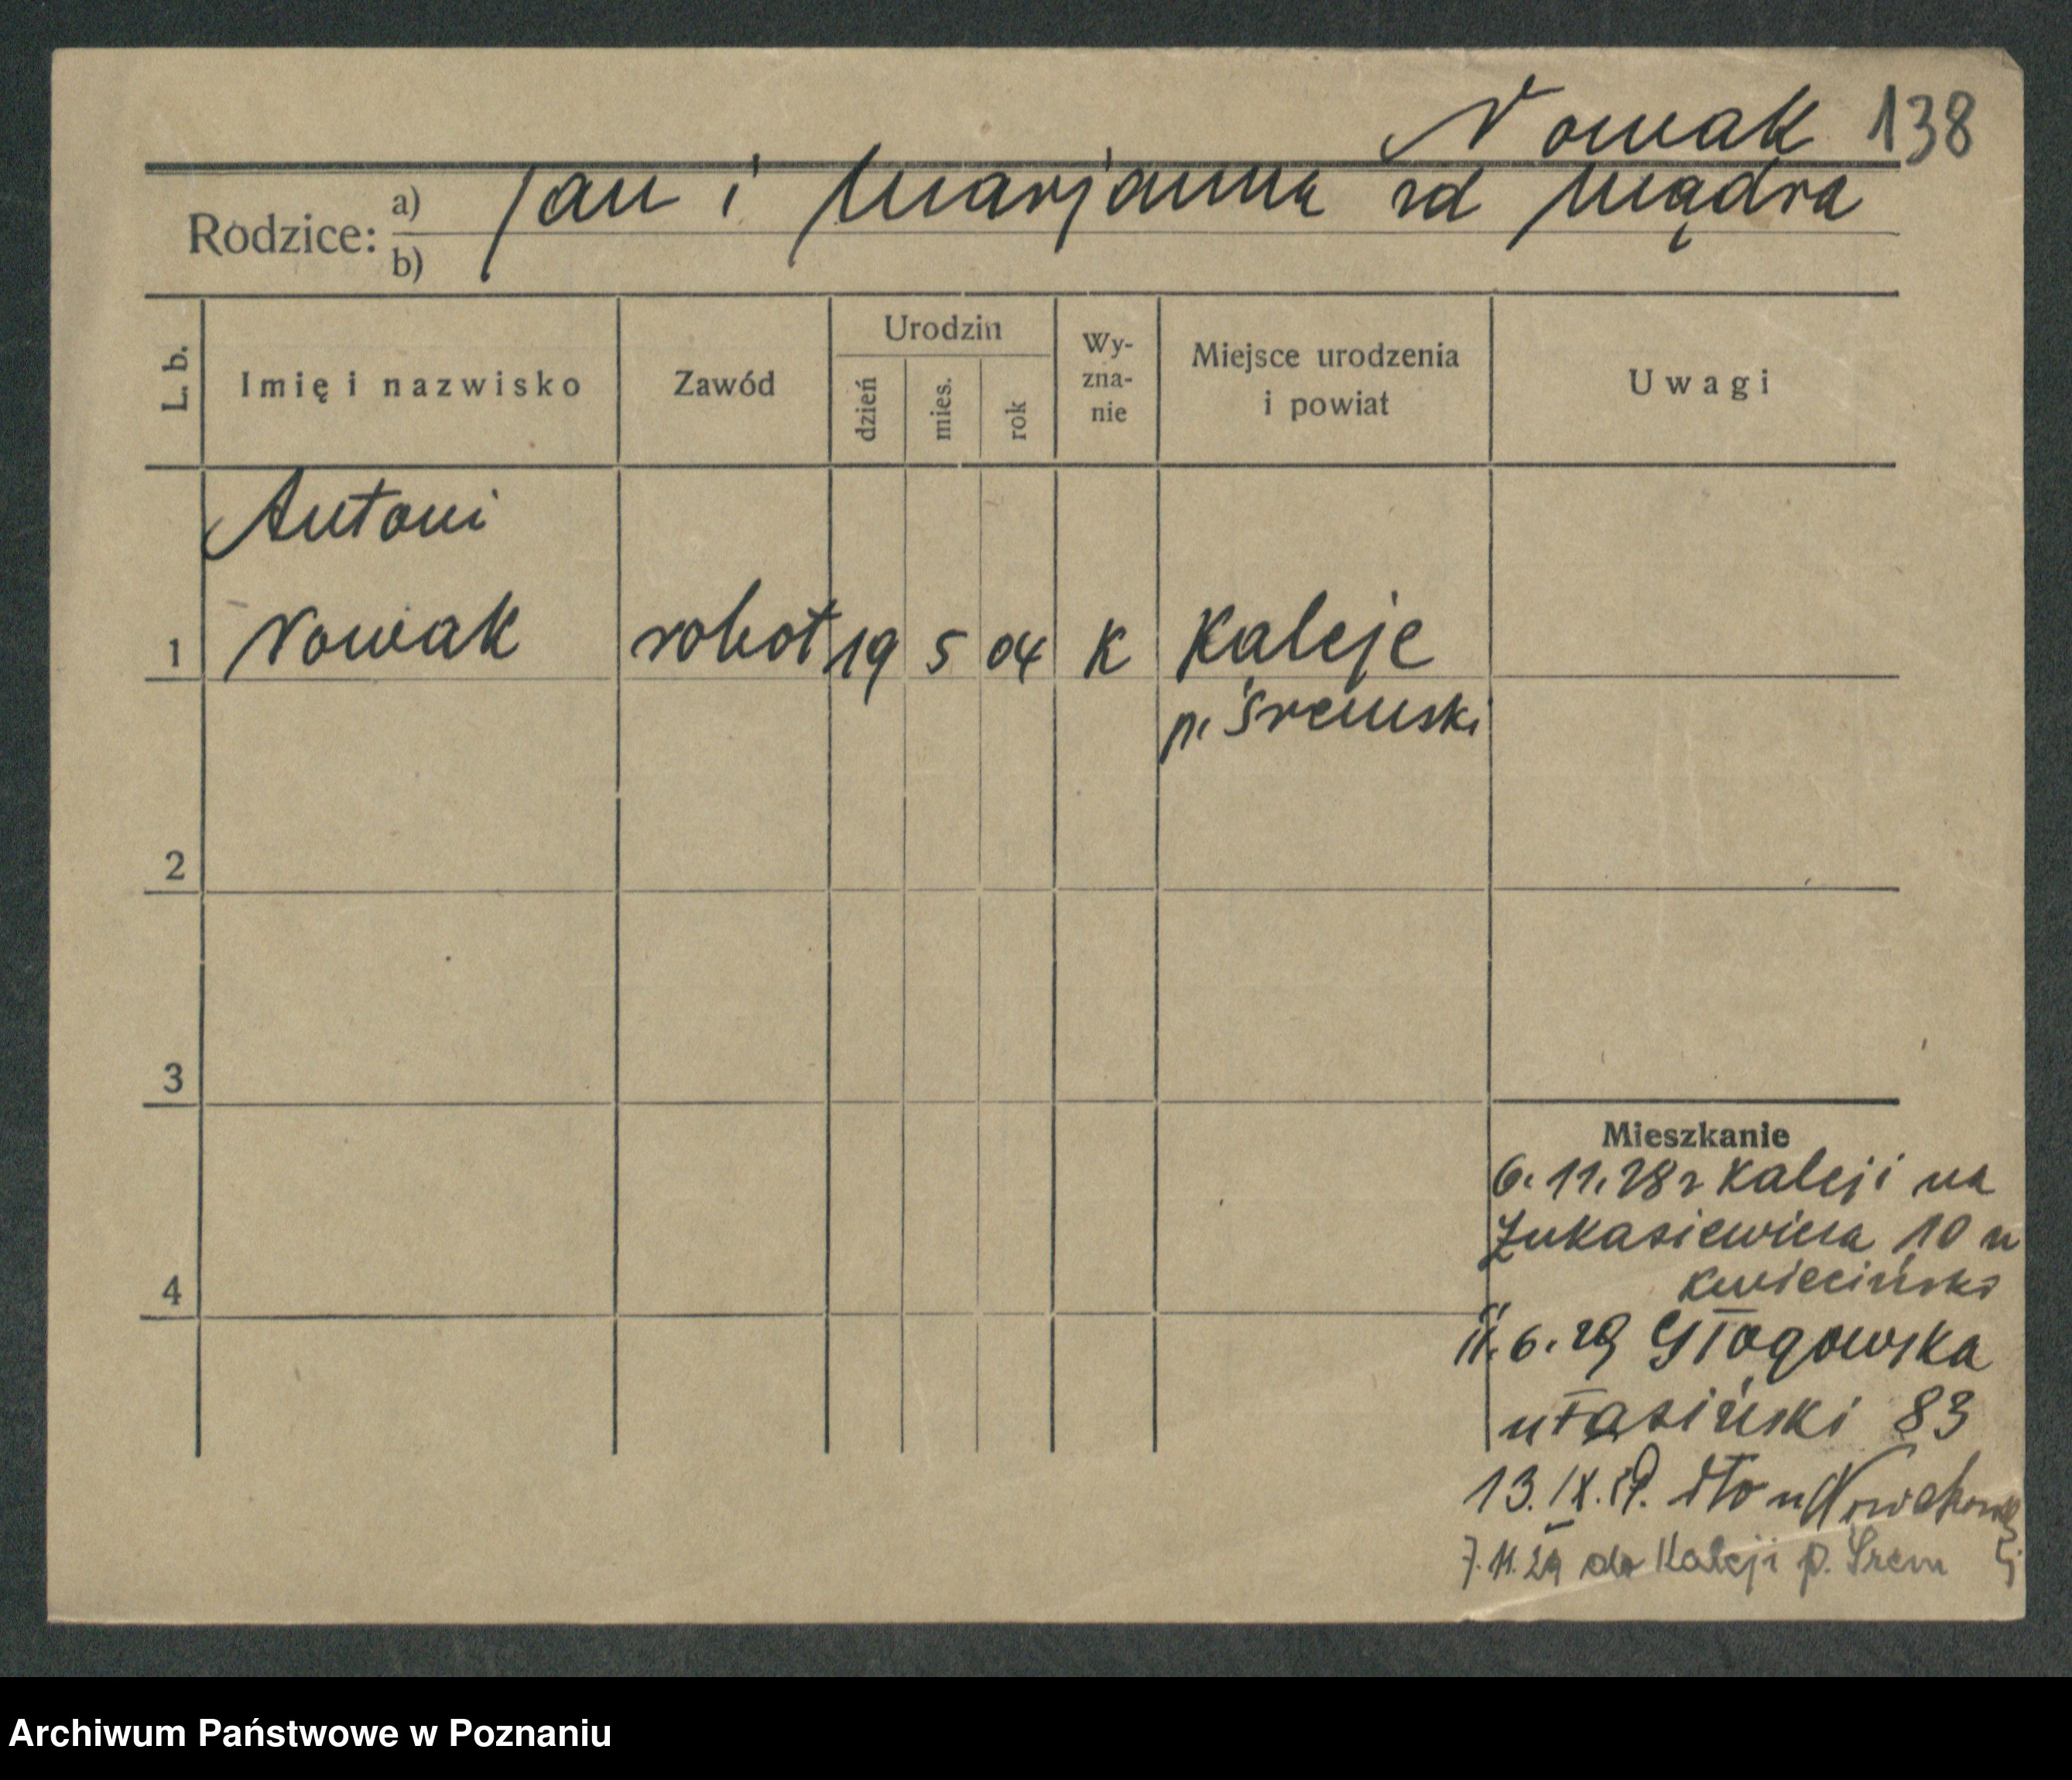 Nowak 138
Rodzice: a) Jan i Marjanna zd Mądra
b)
L. b. Imię i nazwisko Zawód Urodzin dzień mies. rok Wy-zna-nie Miejsce urodzenia i powiat Uwagi
Antoni
1 Nowak robot 19 5 04 K Kaleje
p. śremski
2
3
4
Mieszkanie
6. 11. 28 z Kaleji na
Łukasiewicza 10 u
Kwieciński
6. 29 Głogowska
83
13. IX. 29. u Nowakowski
7. 11. 29 do Kaleji p. Śrem
Archiwum Państwowe w Poznaniu